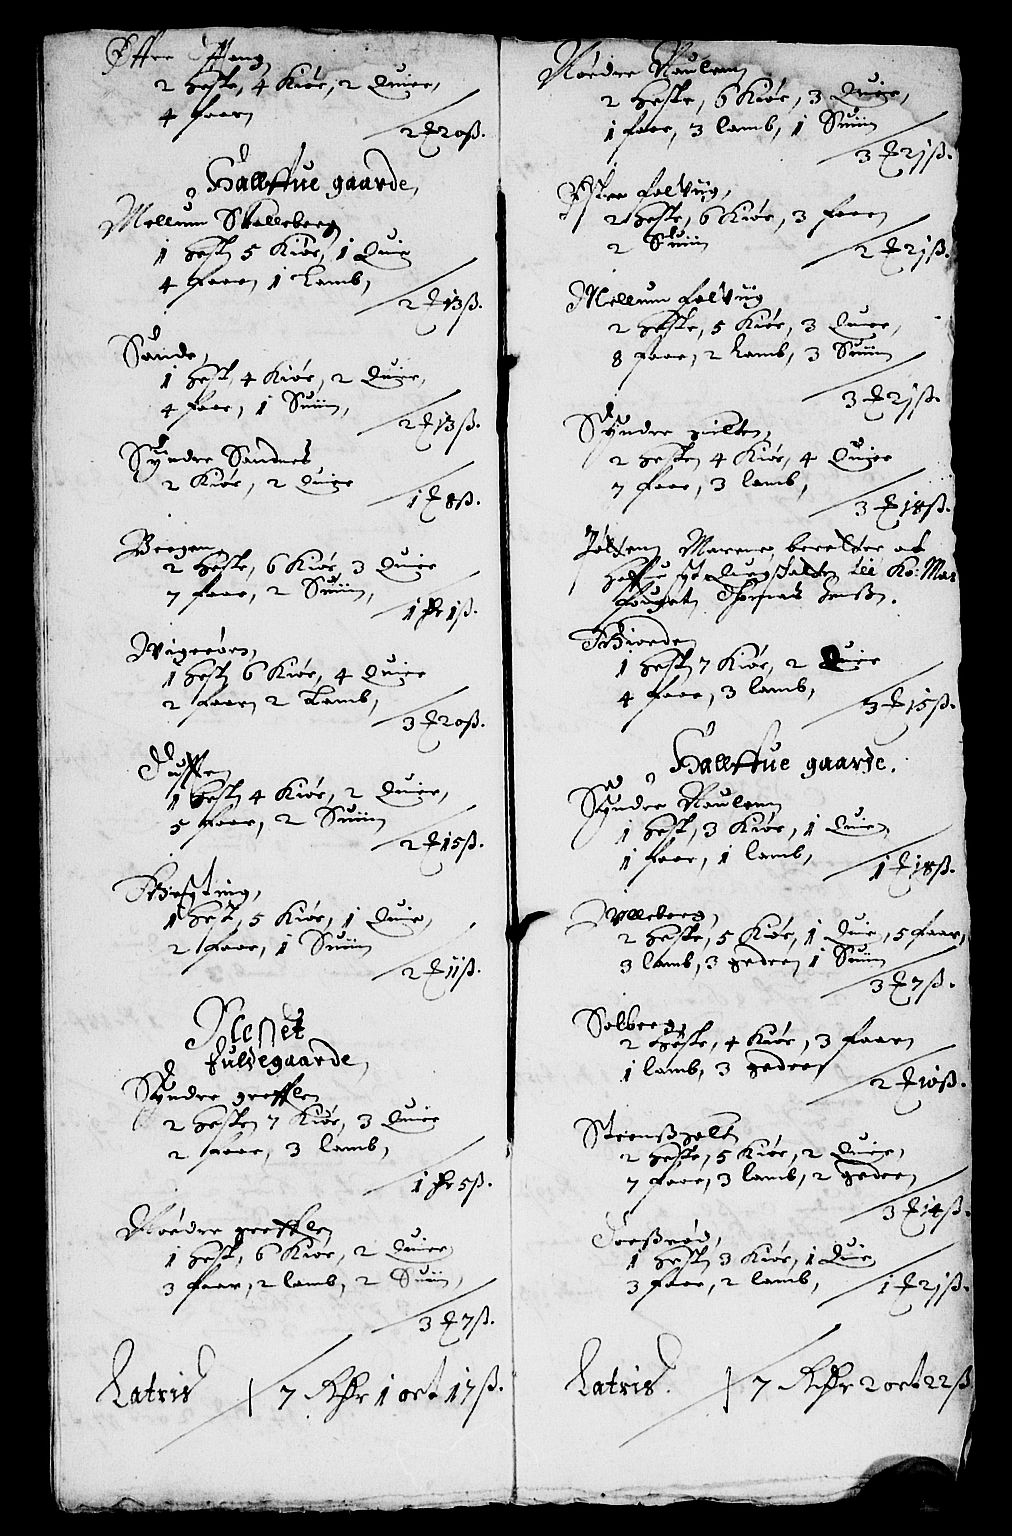 Øffre Hang
2 heste, 4 Kiør, 2 Quier,
4 faar
2 ₰ 20 ß.
Hallffue gaarde,
Mellum Skalleberg
1 hest, 5 Kiør, 1 Quie
4 faar 1 Lamb,
2 ₰ 13 ß.
Sande,
1 hest, 4 Kiør, 2 Quier,
4 faar, 1 Suiin,
2 ₰ 13 ß.
Syndre Sandnes
2 Kiør, 2 Quier
1 ₰ 8 ß.
Bergan
2 heste, 6 Kiør, 3 Quier
7 faar, 2 Suiin,
1 dr 1 ß.
Wigerøen,
1 hest, 6 Kiør, 4 Quier
2 faar 2 Lamb,
3 ₰ 20 ß.
1 hest, 4 Kiør, 2 Quier,
5 faar, 2 Suiin
2 ₰ 15 ß.
1 hest, 5 Kiør, 1 Quie,
2 faar, 1 Suiin
2 ₰ 11 ß.
Slenet
fuldegaarde,
Syndre grefflen
2 hester 7 Kiør, 3 Quier
2 faar, 3 lamb,
1 dr 5 ß.
Nordre grefflen
1 hest, 6 Kiør, 2 Quier,
3 faar, 2 lamb, 2 Suiin,
3 ₰ 7 ß.
Latris 7 Rdr 1 ort 17 ß.
Nordre Raulen
2 heste, 6 Kiør, 3 Quier,
1 faar, 3 lamb, 1 Suiin
3 ₰ 21 ß.
Øster follug,
2 heste, 6 Kiør, 3 faar
2 Suiin
2 ₰ 21 ß.
Mellum follug
2 heste, 5 Kiør, 3 Quier,
8 faar, 2 Lamb, 3 Suiin
3 ₰ 21 ß.
Syndre
2 hester 4 Kiør, 4 Quier
7 faar, 3 lamb,
3 ₰ 18 ß.
Marene, beretter at
till Ko: Mas
fougit Thomas Jensßn.
1 hest, 7 Kiør, 2 Quier
4 faar, 3 lamb,
3 ₰ 15 ß.
Hallffue gaarde.
Syndre Raulen
1 hest, 3 Kiør, 1 Quie,
1 faar, 1 lamb,
1 ₰ 18 ß.
Ulleberg,
2 heste, 5 Kiør, 1 Quie, 5 faar,
3 lamb, 3 geder 1 Suiin
3 ₰ 7 ß.
Solberg,
2 heste, 4 Kiør, 3 faar
1 lamb, 3 geder
2 ₰ 10 ß.
Steensholt
2 heste, 5 Kiør, 2 Quier,
7 faar, 3 lamb, 2 geder
3 ₰ 14 ß.
1 hest, 3 Kiør, 1 Quie
3 faar, 2 lamb,
1 ₰ 21 ß.
Latris. 7 Rdr 2 ort 22 ß